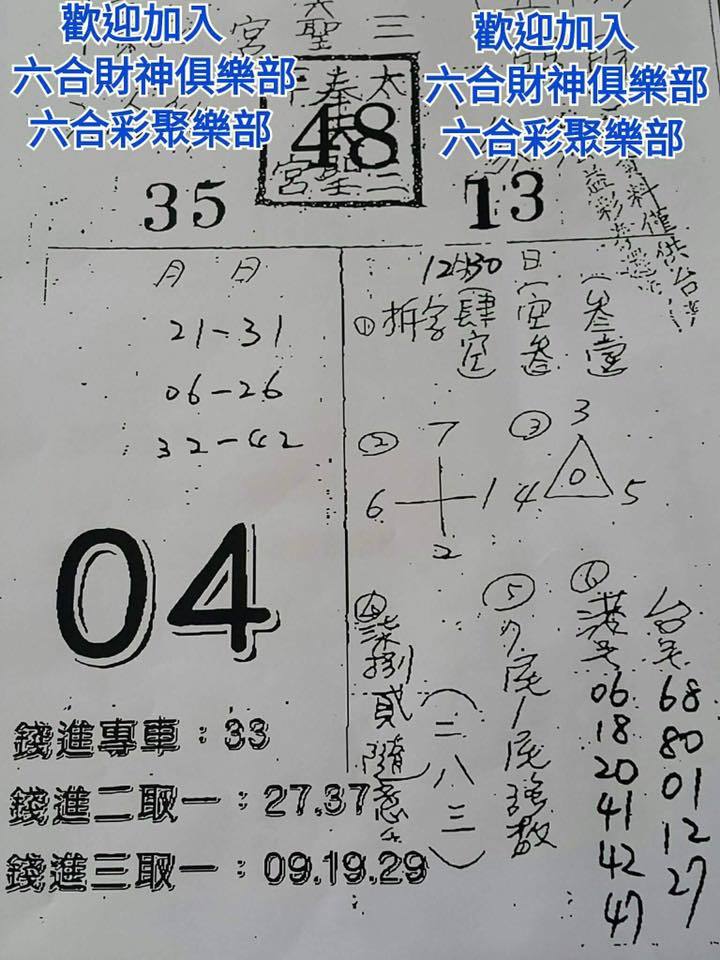 歡迎加入
六合財神俱樂部
六合彩聚樂部
歡迎加入
六合財神俱樂部
六合彩聚樂部
三聖宮
太
奉
二聖宮
48
35
13
資料僅供台
益彩券
月 日
21-31
06-26
32-42
04
錢進專車:33
錢進二取一:27.37
錢進三取一:09.19.29
12月30日
① 拆字(肆空)(空叁)(叁壹)
② 7
6 1
2
③ 3
0
4 5
④ 柒捌貳隨意
(二八三)
⑤
尾
尾強数
⑥ 港号
06
18
20
41
42
47
台号
68
80
01
12
27